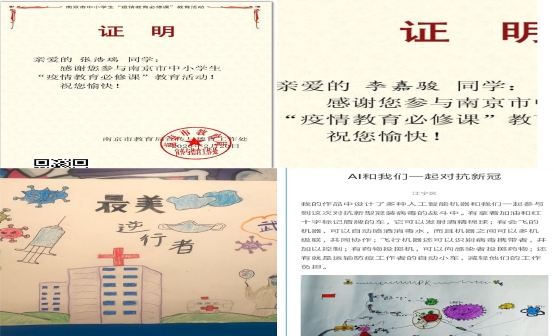 南京市中小学生“疫情教育必修课”教育活动
证 明
亲爱的 张浩瑞 同学：
感谢您参与南京市中小学生
“疫情教育必修课”教育活动！
祝您愉快！
证 明
亲爱的 李嘉骏 同学：
感谢您参与南京市
“疫情教育必修课”教
祝您愉快！
最美
逆行者
武
AI和我们一起对抗新冠
江宁区
我的作品中设计了多种人工智能机器和我们一起参与
到这次对抗新型冠装病毒的战斗中。有拿着加油和红
十字标记盾牌的车，它可以发射酒精稀球；有会飞的
机器，可以自动喷洒消毒水，而且机器之间可以多机
级联，共同协作；飞行机器还可以识别病毒携带者，并
加以控制；有药物投掷机，可以向感染者投掷药物；还
有就是运输防疫工作者的自动小车，减轻他们的工作
负担。